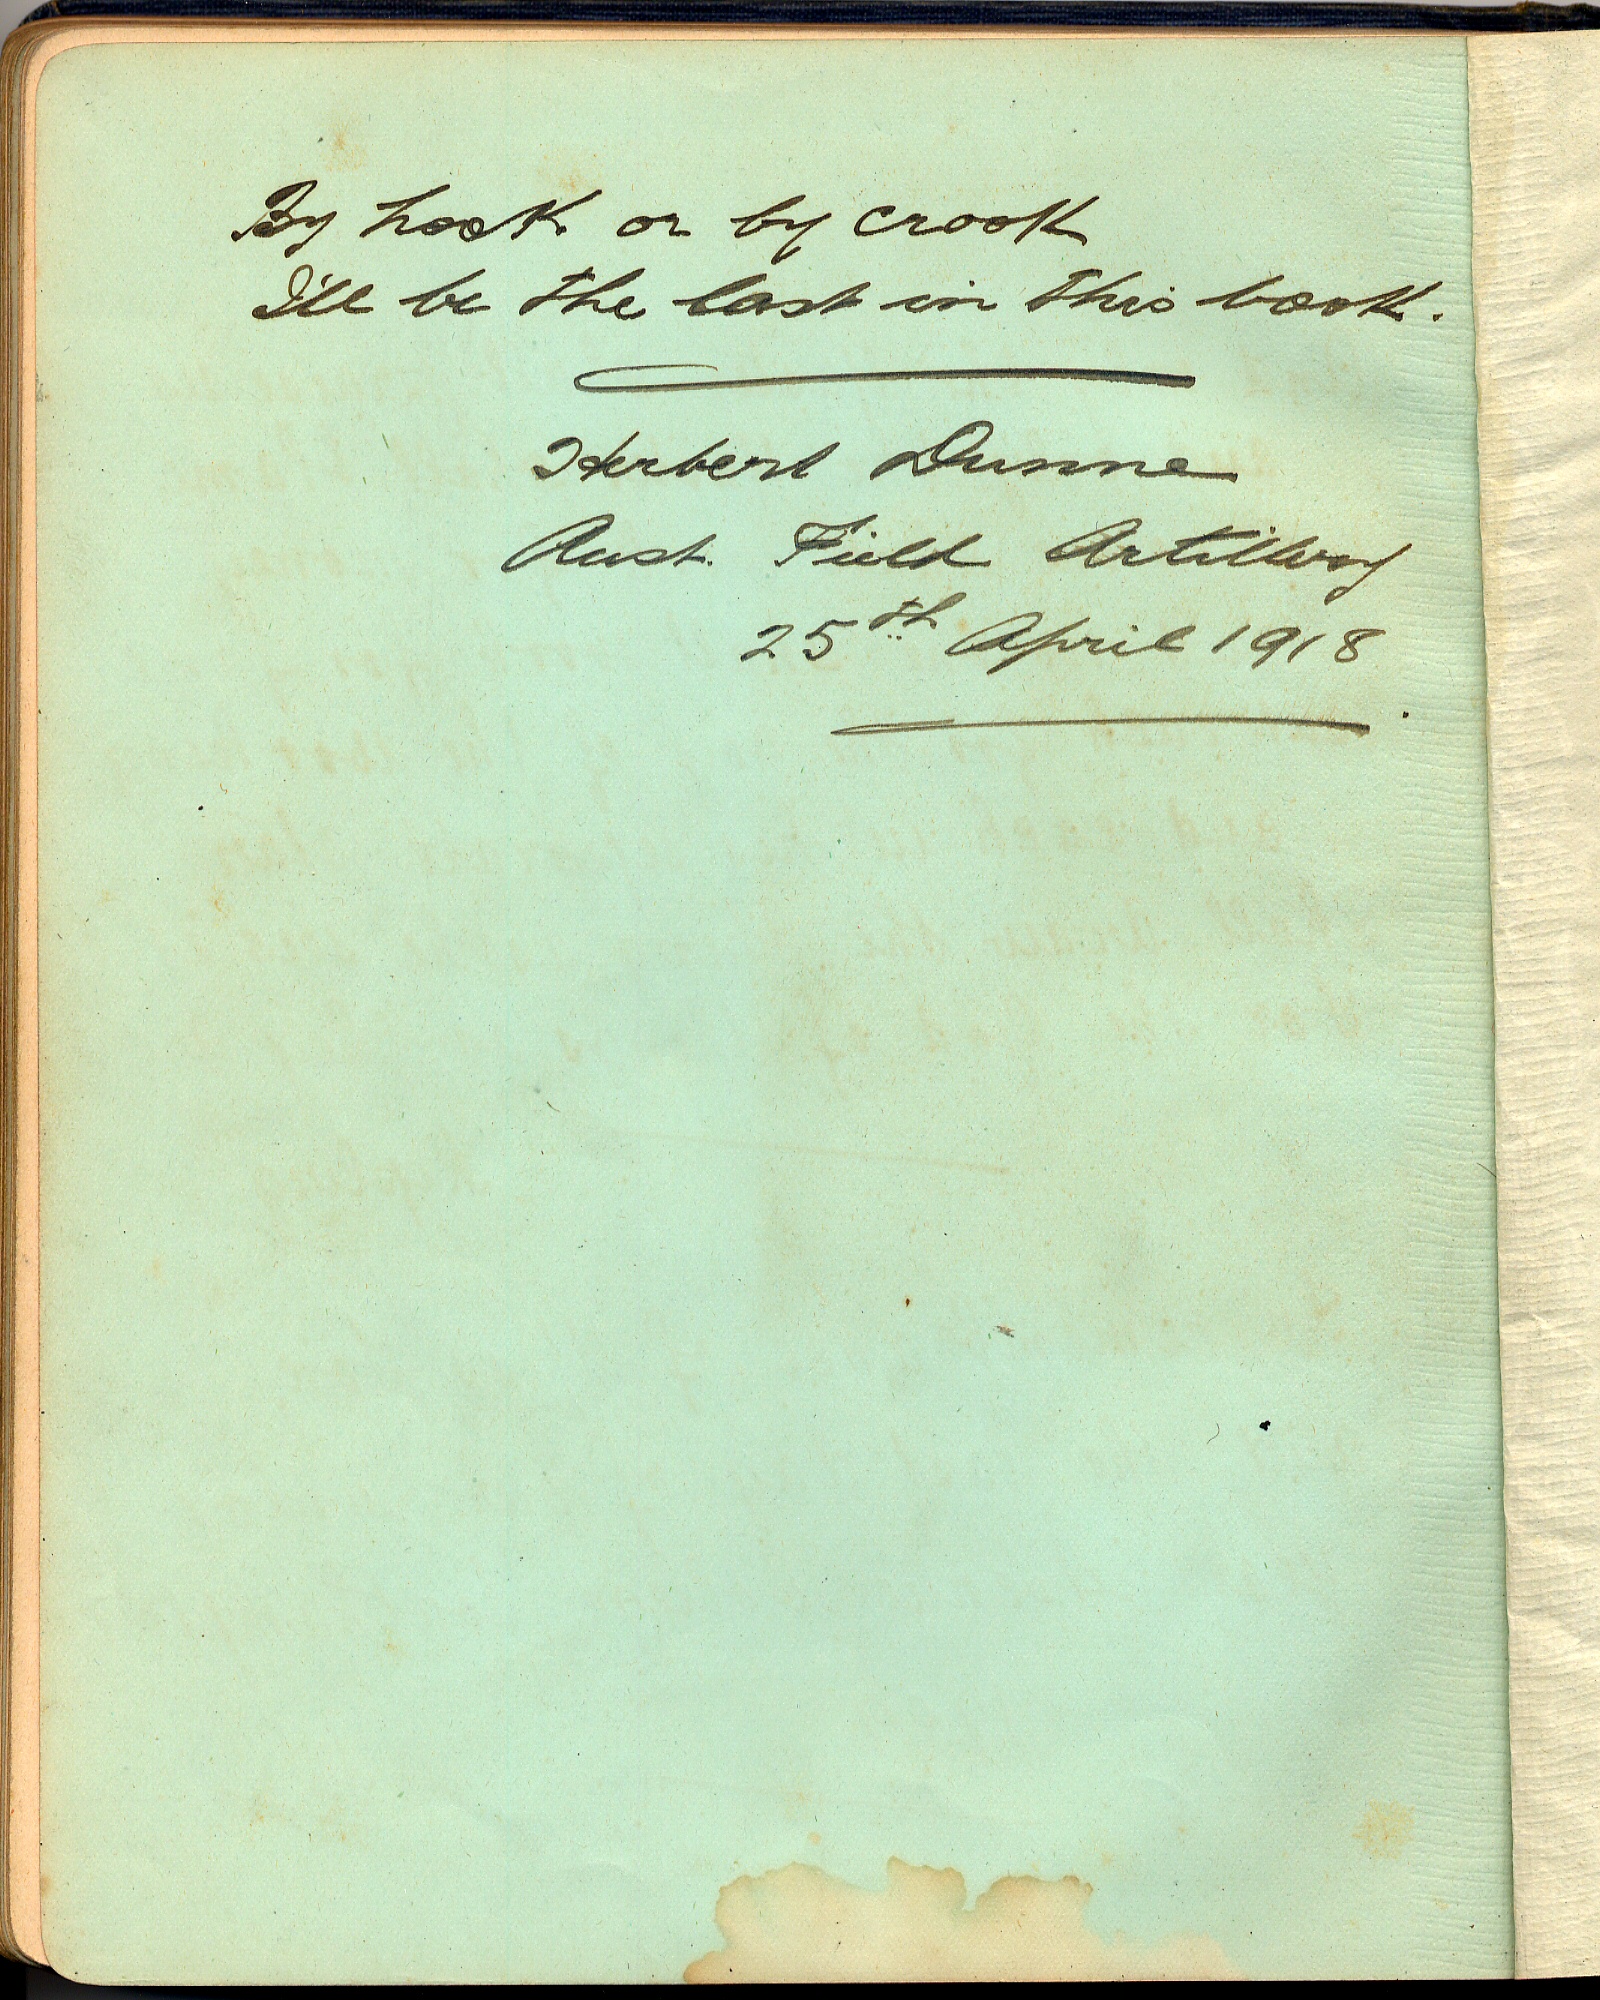 By hook or by crook
I'll be the last in this book.
Herbert Dunne
Aust. Field Artillery
25th April 1918